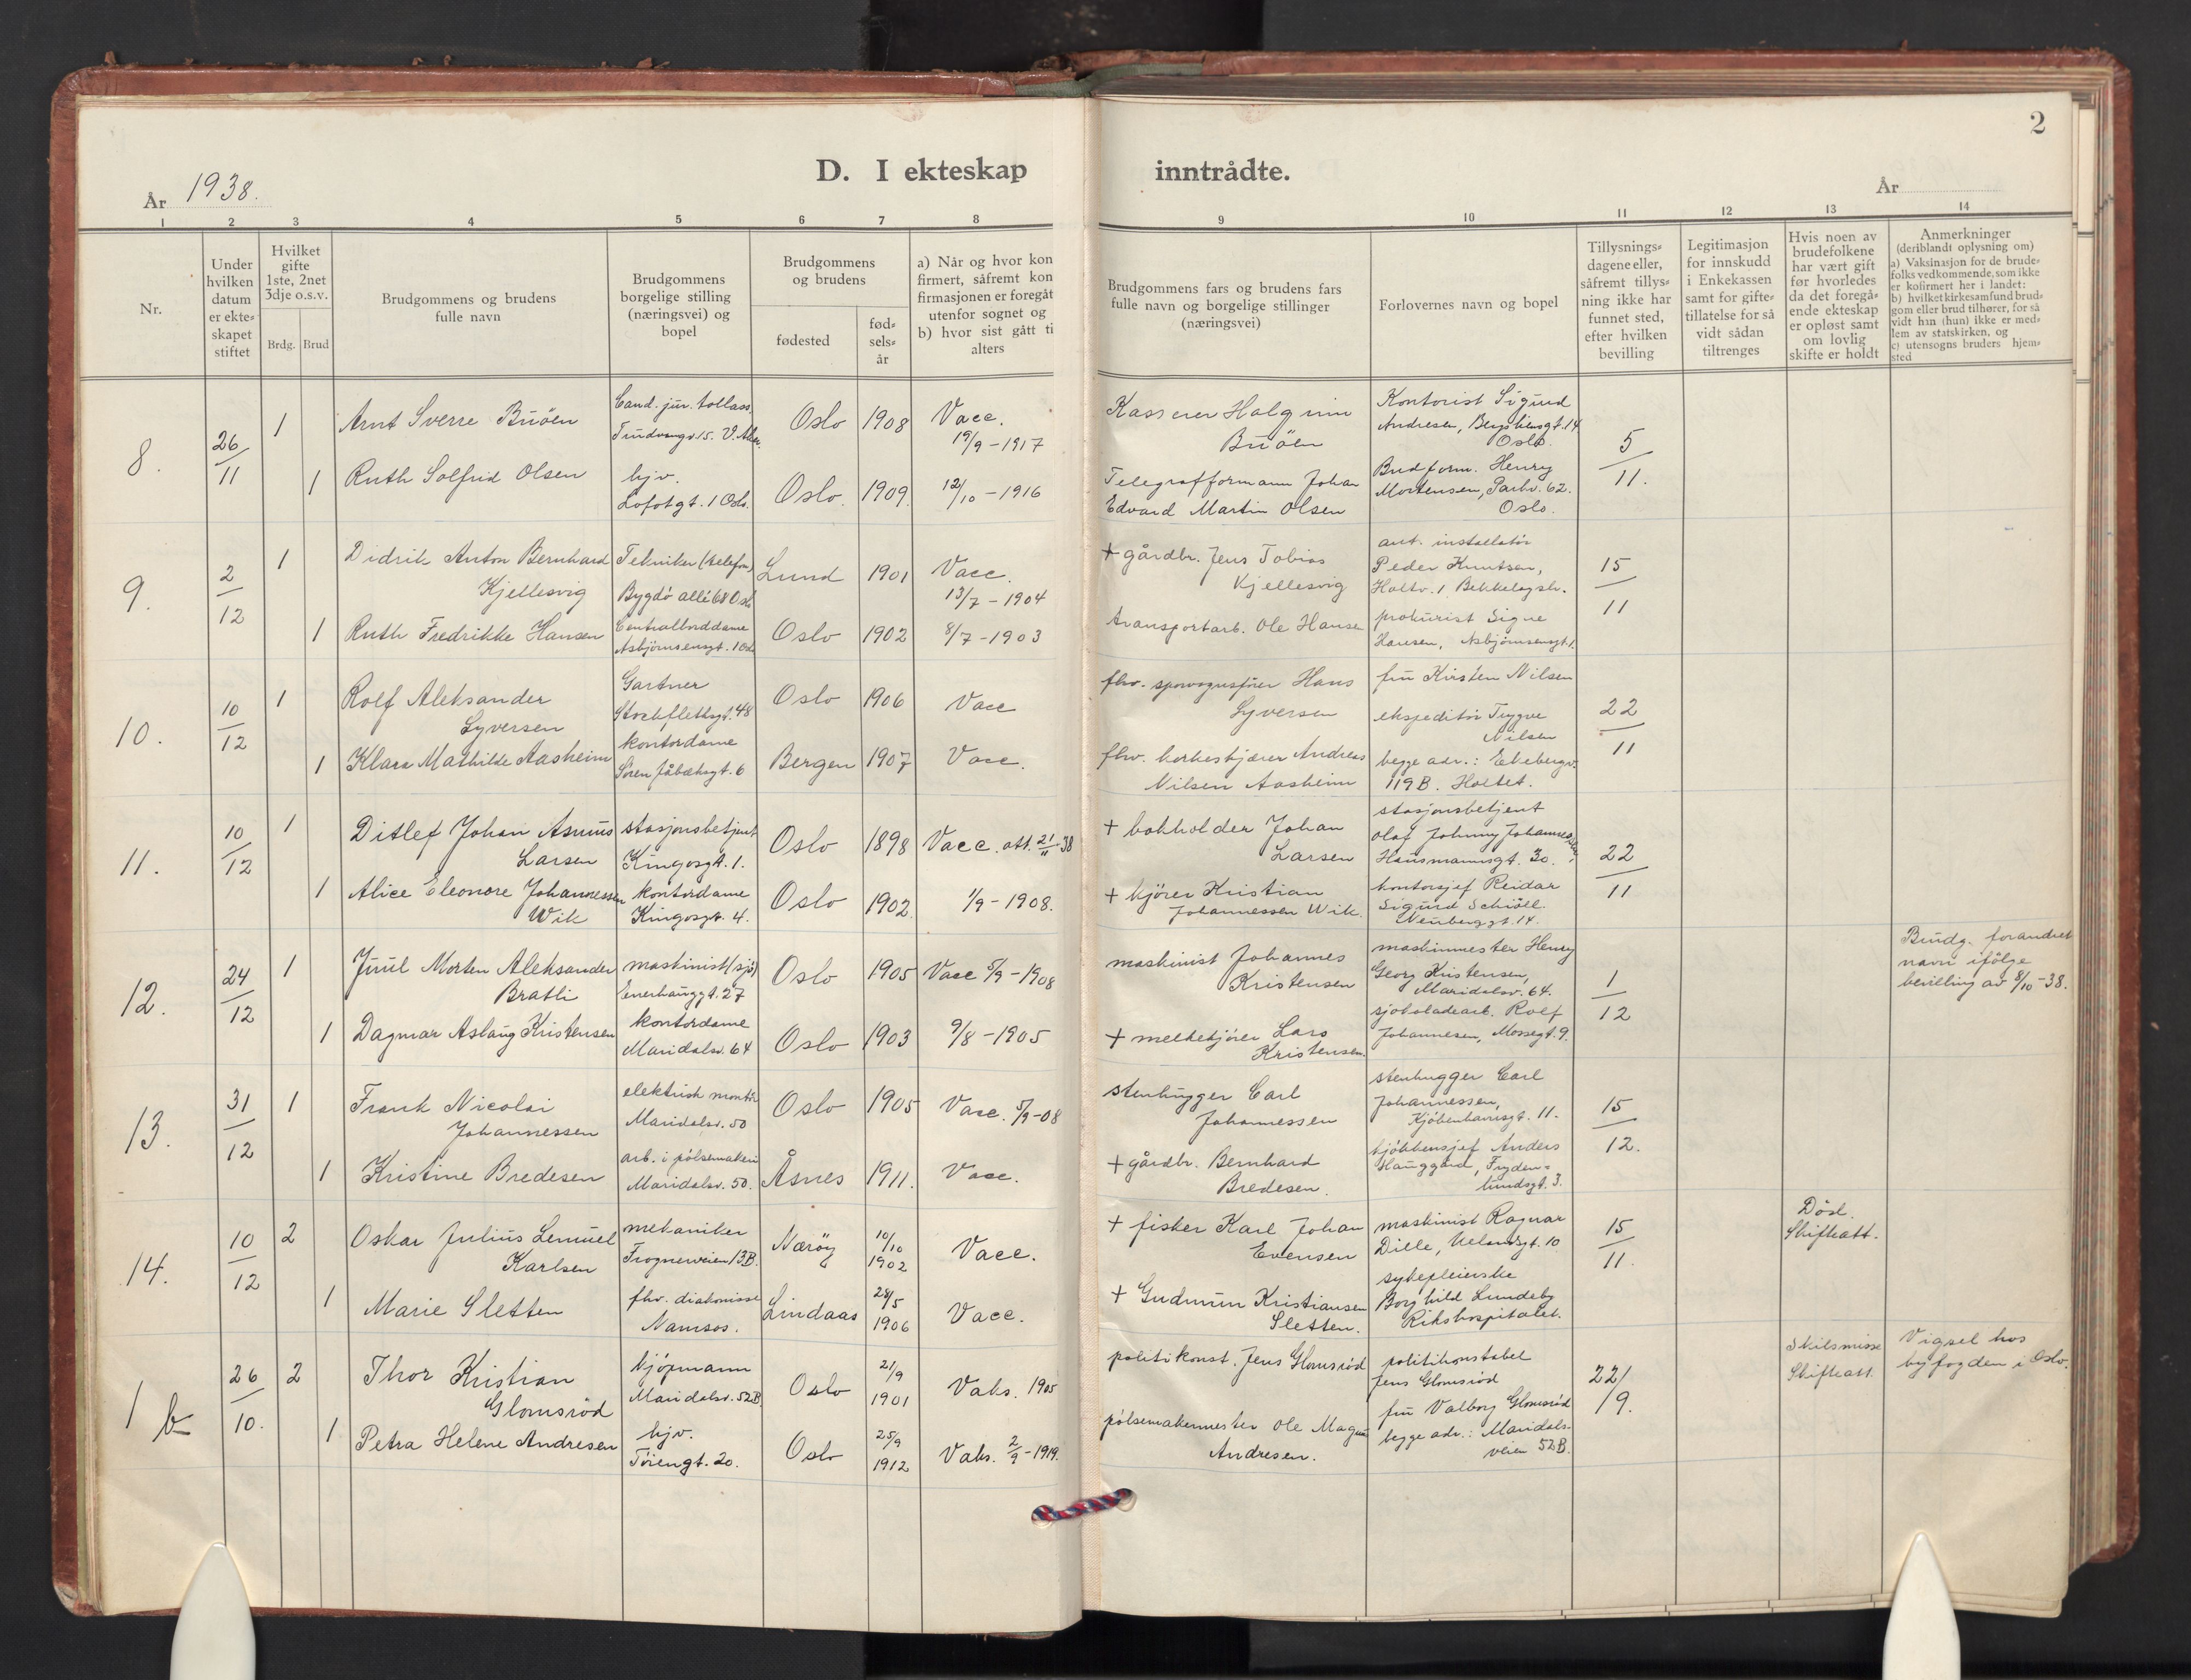 2
D. I ekteskap inntrådte.
År 1938.
År
1 2 3 4 5 6 7 8 9 10 11 12 13 14
Nr.
Under
hvilken
datum
er ekte-
skapet
stiftet
Hvilket
gifte
1ste, 2net
3dje o.s.v.
Brdg. Brud
Brudgommens og brudens
fulle navn
Brudgommens
borgelige stilling
(næringsvei) og
bopel
Brudgommens
og brudens
fødested
fød-
sels-
år
a) Når og hvor kon
firmert, såfremt kon
firmasjonen er foregåt
utenfor sognet og
b) hvor sist gått ti
alters
Brudgommens fars og brudens fars
fulle navn og borgelige stillinger
(næringsvei)
Forlovernes navn og bopel
Tillysnings-
dagene eller,
såfremt tillys-
ning ikke har
funnet sted,
efter hvilken
bevilling
Legitimasjon
for innskudd
i Enkekassen
samt for gifte-
tillatelse for så
vidt sådan
tiltrenges
Hvis noen av
brudefolkene
har vært gift
før hvorledes
da det foregå-
ende ekteskap
er opløst samt
om lovlig
skifte er holdt
Anmerkninger
(deriblandt oplysning om)
a) Vaksinasjon for de brude-
folks vedkommende, som ikke
er kofirmert her i landet:
b) hvilket kirkesamfund brud-
gom eller brud tilhører, for så
vidt han (hun) ikke er med-
lem av statskirken, og
c) utensogns bruders hjem-
sted
8.
26/11
1
Arnt Sverre Buöen
Cand. jur. tollass.
Oslo
1908
Vacc.
19/9 - 1917
1
Ruth Solfrid Olsen
hjv.
Lofotgt. 1 Oslo.
Oslo.
1909
12/10 - 1916
Kasserer Halgrim
Buöen
Telegrafformann Johan
Edvard Martin Olsen
Kontorist Sigurd
Andresen, 14
Oslo.
Budform. Henry
Mortensen, Parkv. 62.
Oslo.
5/11.
9.
2/12
1
Didrik Anton Bernhard
Kjellesvig
Tekniker (telefon)
Bygdö allé 68 Oslo
Lund
1901
Vacc.
13/7 - 1904
1
Ruth Fredrikke Hansen
Centralborddame
Asbjörnsensgt. 1 Oslo
Oslo
1902
8/7 - 1903
+ gårdbr. Jens Tobias
Kjellesvig
transportarb. Ole Hansen
aut. installatör
Peder Knutsen,
Holtv. 1, Bekkelagsh.
prokurist Signe
Hansen, Asbjörnsensgt. 1.
15/11
10.
10/12
1
Rolf Aleksander
Syversen
Gartner
Stockflethsgt. 48
Oslo
1906
Vacc
1
Klara Mathilde Aasheim
kontordame
Sören Jåbæksgt. 6
Bergen
1907
Vacc.
fhv. sporvognsfører Hans
Syversen
fhv. Andreas
Nilsen Aasheim
fru Kirsten Nilsen
ekspeditör Trygve
Nilsen
begge adr.: Ekebergv.
119 B. Holtet.
22/11
11.
10/12
1
Ditlef Johan Asmus
Larsen
stasjonsbetjent
Kingosgt. 1.
Oslo
1898
Vacc. att. 21/11-38
1
Alice Eleonore Johannessen
Wik
kontordame
Kingosgt. 4.
Oslo
1902
1/9 - 1908.
+ bokholder Johan
Larsen
+ kjörer Kristian
Johannessen Wik.
stasjonsbetjent
Olaf Johnny Johannessen,
Hausmannsgt. 30.
kontorsjef Reidar
Sigurd Schiöll
Neuberggt. 14.
22/11
12.
24/12
1
Juul Morten Aleksander
Bratli
maskinist (sjö)
Enerhauggt. 27
Oslo
1905
Vacc 5/9 - 1908
1
Dagmar Aslaug Kristensen
kontordame
Maridalsv. 64
Oslo
1903
9/8 - 1905
maskinist Johannes
Kristensen
+ melkekjörer Lars
Kristensen.
maskinmester Henry
Georg Kristensen,
Maridalsv. 64.
sjokoladearb. Rolf
Johannesen, Mossegt. 9.
1/12
Brudg. forandret
navn ifölge
bevilling av 8/10-38.
13.
31/12
1
Frank Nicolai
Johannessen
elektrisk montör
Maridalsv. 50
Oslo
1905
Vacc. 5/9-08
1
Kristine Bredesen
arb. i pölsemakeri
Maridalsv. 50.
Åsnes
1911.
Vacc.
stenhugger Carl
Johannessen
+ gårdbr. Bernhard
Bredesen.
stenhugger Carl
Johannessen,
Kjöbenhavnsgt. 11.
kjökkensjef Anders
Hauggård, Fryden-
lundsgt. 3.
15/12.
14.
10/12
2
Oskar Julius Lemuel
Karlsen
mekaniker
Frognerveien 13 B.
Nærøy
10/10
1902
Vacc.
1
Marie Sletten
fhv. diakonisse
Namsos.
Lindaas
28/5
1906
Vacc.
+ fisker Karl Johan
Evensen
+ Gudmun Kristiansen
Sletten.
maskinist Ragnar
Dille, Uelandsgt. 10
sykepleierske
Borghild Lundeby
Rikshospitalet.
15/11.
Död.
Skifteatt.
1 b
26/10.
2
Thor Kristian
Glomsröd
kjöpmann
Maridalsv. 52B.
Oslo
21/9
1901
Vaks. 1905
1
Petra Helene Andresen
hjv.
Töiengt. 20.
Oslo
25/9
1912
Vaks. 2/9 - 1919.
politikonst. Jens Glomsröd
pölsemakermester Ole Magnus
Andresen.
politikonstabel
Jens Glomsröd
fru Valborg Glomsröd
begge adr.: Maridals-
veien 52B.
22/9.
Skilsmisse
Skifteatt.
Vigsel hos
byfogden i Oslo.